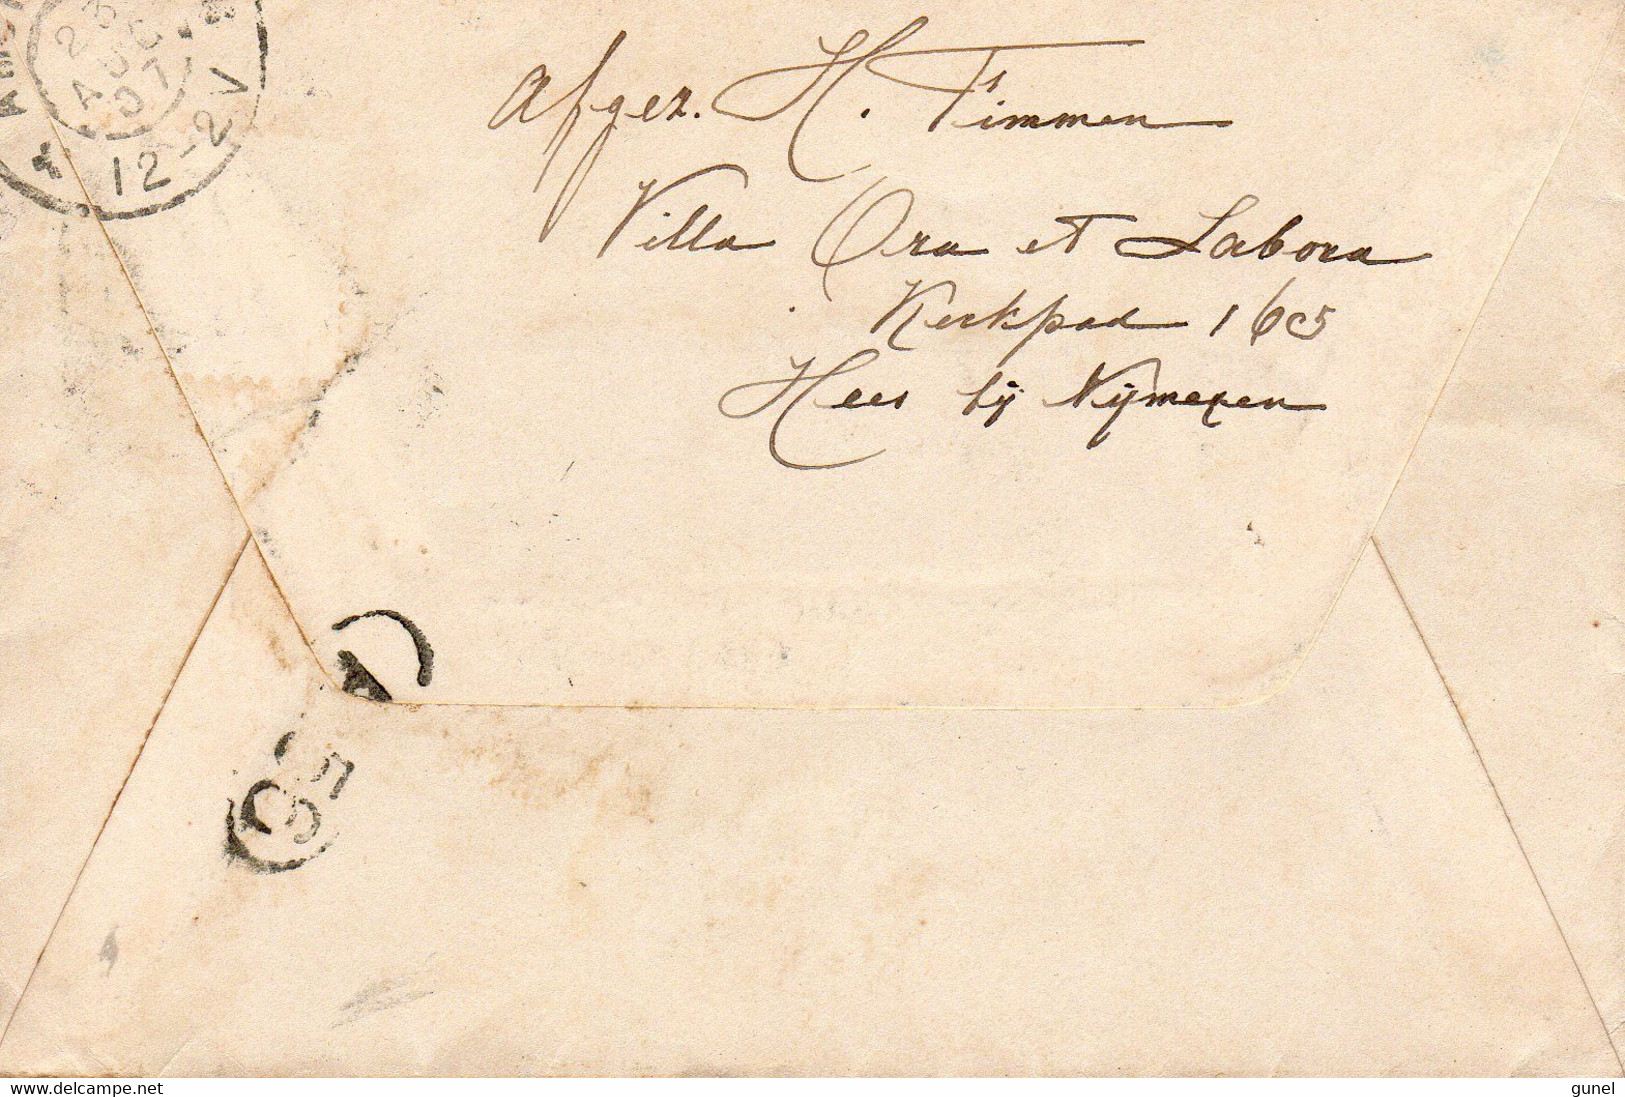 23
AUG
07
12-2V
Afgez. H. Timmen
Villa Ora et Labora
Kerkpad 165
Hees bij Nijmegen
A
5
www.delcampe.net
gunel